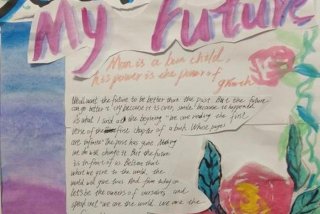 My Future
Man is a bun child,
his power is the power of
growth
want the future to be better than the past. But the future
can be better if cry because it is over, smile because it happened
is what I said at the begining "we are reading the first
verse of the first chapter of a book. Whose pages
are infinite" the past has gone. Nothing
we do will change it. But the future
is in front of us. Believe that
what we give to the world, the
world will give And from today on
let's be the owners of ourselves, and
speak out "we are the world, we are the